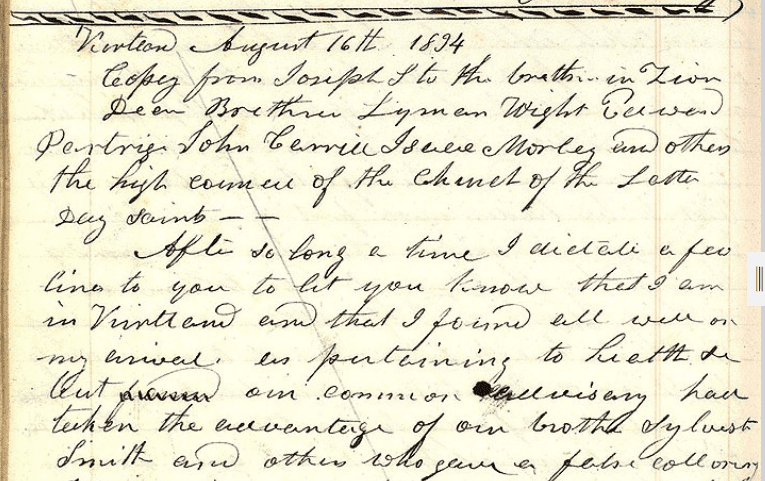 Kirtland August 16th 1834
Copey from Joseph S to the brethren in Zion
Dear Brethren Lyman Wight Edward
Partrige John Carrill Isaac Morley and others
the high council of the Church of the Latter
Day saints — —
After so long a time I dictate a few
lines to you to let you know that I am
in Kirtland and that I found all well on
my arival. as pertaining to health &c
but our common advisary had
taken the advantage of our brother Sylvest
Smith and others who gave a false colloring